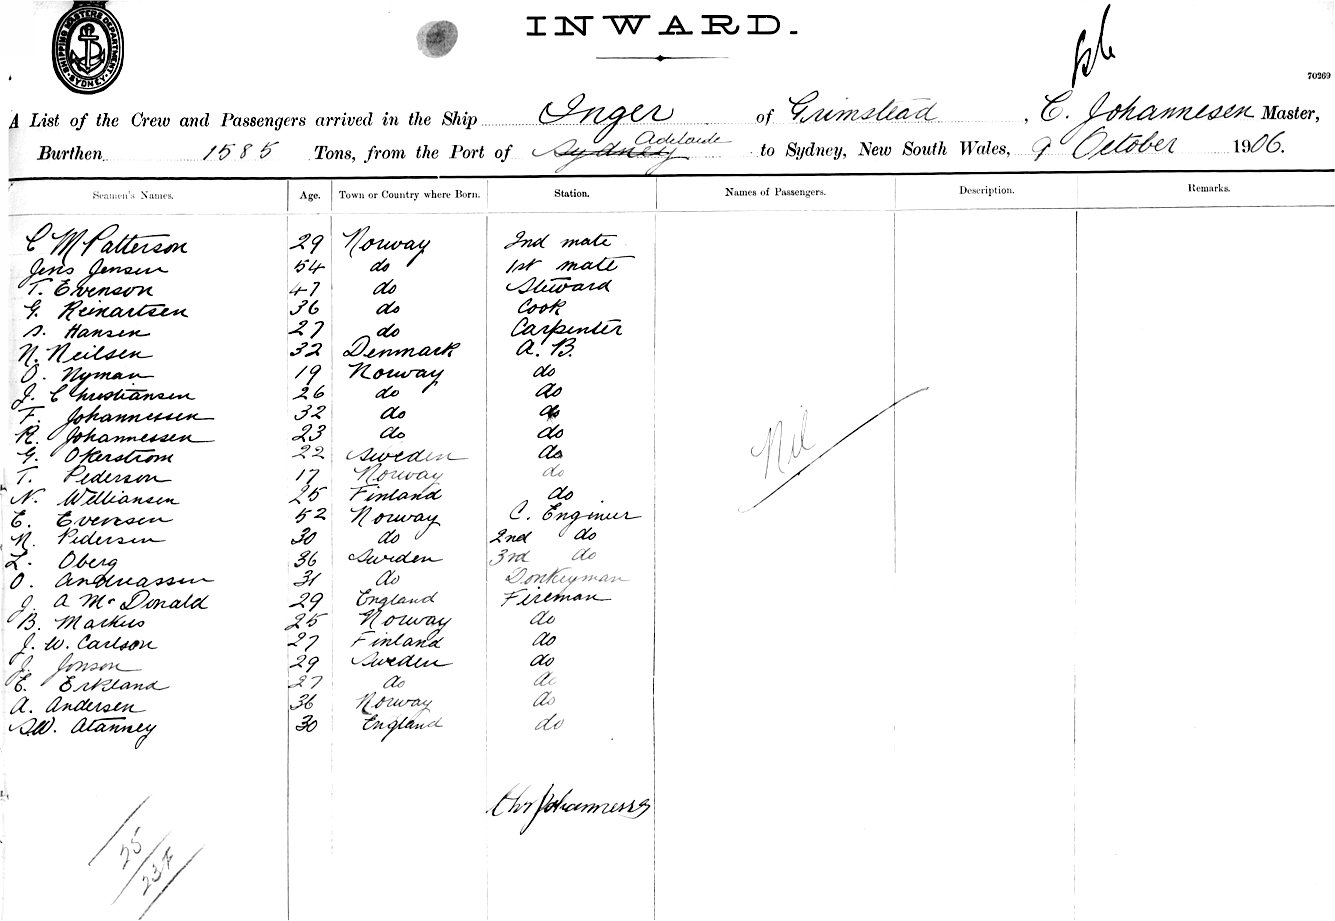 SHIPPING MASTERS DEPARTMENT SYDNEY
INWARD.
70269
A List of the Crew and Passengers arrived in the Ship Inger of Grimstead, C. Johannesen Master,
Burthen 1585 Tons, from the Port of Sydney Adelaide to Sydney, New South Wales, 9 October 1906.
Seamen's Names. Age. Town or Country where Born. Station. Names of Passengers. Description. Remarks.
C M Patterson 29 Norway 2nd mate
Jens Jensen 54 do 1st mate
T. Evenson 47 do Steward
G. Reinartsen 36 do Cook
S. Hansen 27 do Carpenter
N. Neilsen 32 Denmark A. B.
O. Nyman 19 Norway do
J. Christiansen 26 do do
F. Johannessen 32 do do
R. Johannessen 23 do do
G. Okerstrom 22 Sweden do
T. Pederson 17 Norway do
N. Williansen 25 Finland do
E. Evensen 52 Norway C. Enginier
N. Pedersen 30 do 2nd do
L. Oberg 36 Sweden 3rd do
O. Andreassen 31 do Donkeyman
J. A McDonald 29 England Fireman
B. Markus 25 Norway do
J. W. Carlson 27 Finland do
J. Jonson 29 Sweden do
E. Erkland 27 do do
A. Andersen 36 Norway do
S.W. Atanney 30 England do
Nil
Chr Johannessen
25
23 F